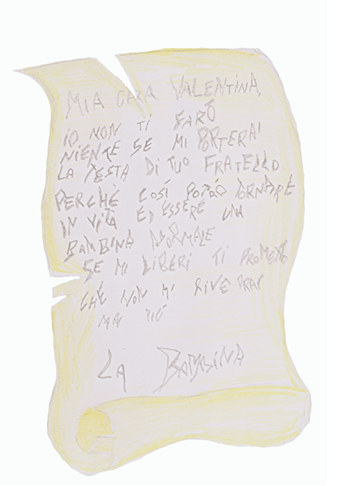 MIA CARA VALENTINA,
IO NON TI FARÒ
NIENTE SE MI PORTERAI
LA TESTA DI TUO FRATELLO
PERCHÈ COSÌ POTRÒ TORNARE
IN VITA ED ESSERE UNA
BAMBINA NORMALE
SE MI LIBERI TI PROMETTO
CHE NON MI RIVEDRAI
MAI PIÙ
LA BAMBINA